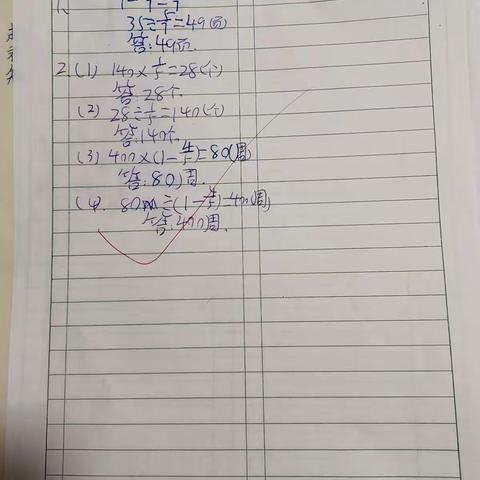 35÷5/7=49(页)
答:49页.
2.(1) 140×1/5=28(个)
答:28个.
(2) 28÷1/5=140(个)
答:140个.
(3) 400×(1-4/5)=80(周)
答:80周.
(4). 80÷(1-4/5)=400(周)
答:400周.